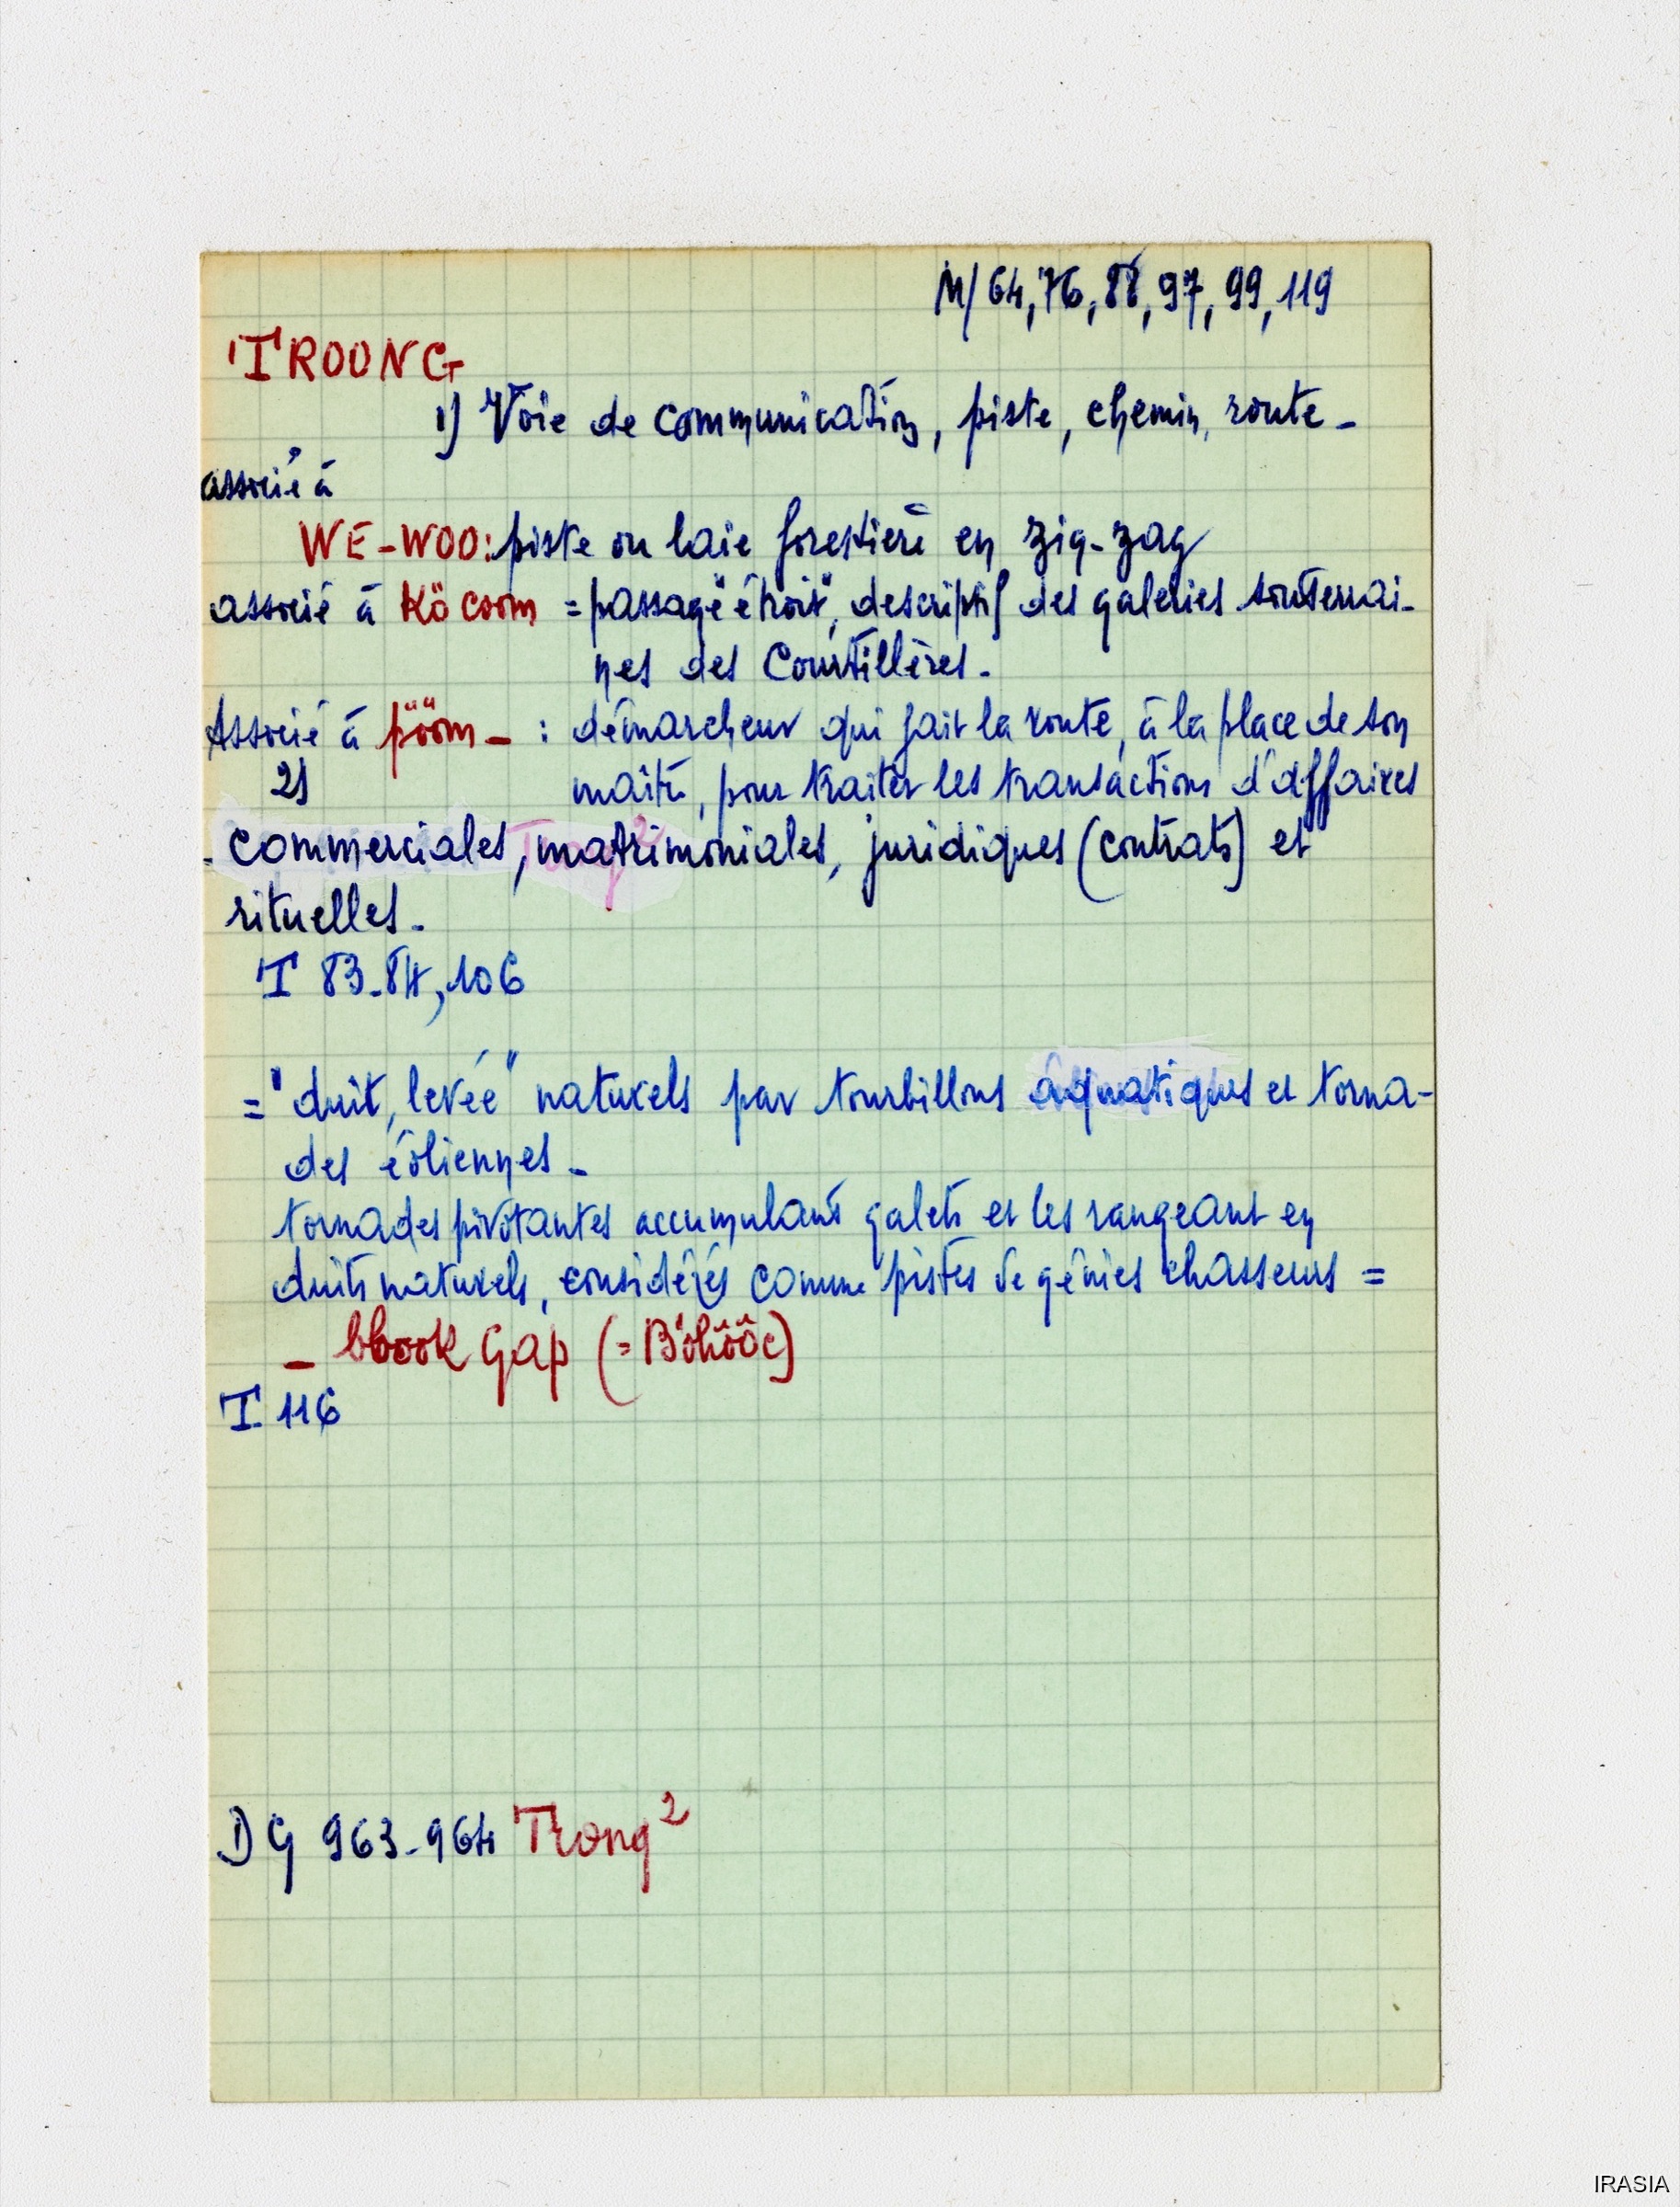 M/ 64, 76, 88, 97, 99, 119
TROONG
1) Voie de communication, piste, chemin, route -
associé à
WE-WOO: piste ou laie forestière en zig-zag
associé à Kö coom = passage "étroit", descriptif des galeries souterrai-
nes des Courtillères -
Associé à pööm - : démarcheur qui fait la route, à la place de son
2) maître, pour traiter les transactions d'affaires
commerciales, matrimoniales, juridiques (contrats) et
rituelles -
T 83-84, 106
= "duit, levée" naturels par tourbillons aquatiques et torna-
des éoliennes -
tornades pivotantes accumulant galets et les rangeant en
duits naturels, considérés comme pistes de génies chasseurs =
- book Gap (= Böhööc)
T. 116
DG 963-964 Trong²
IRASIA